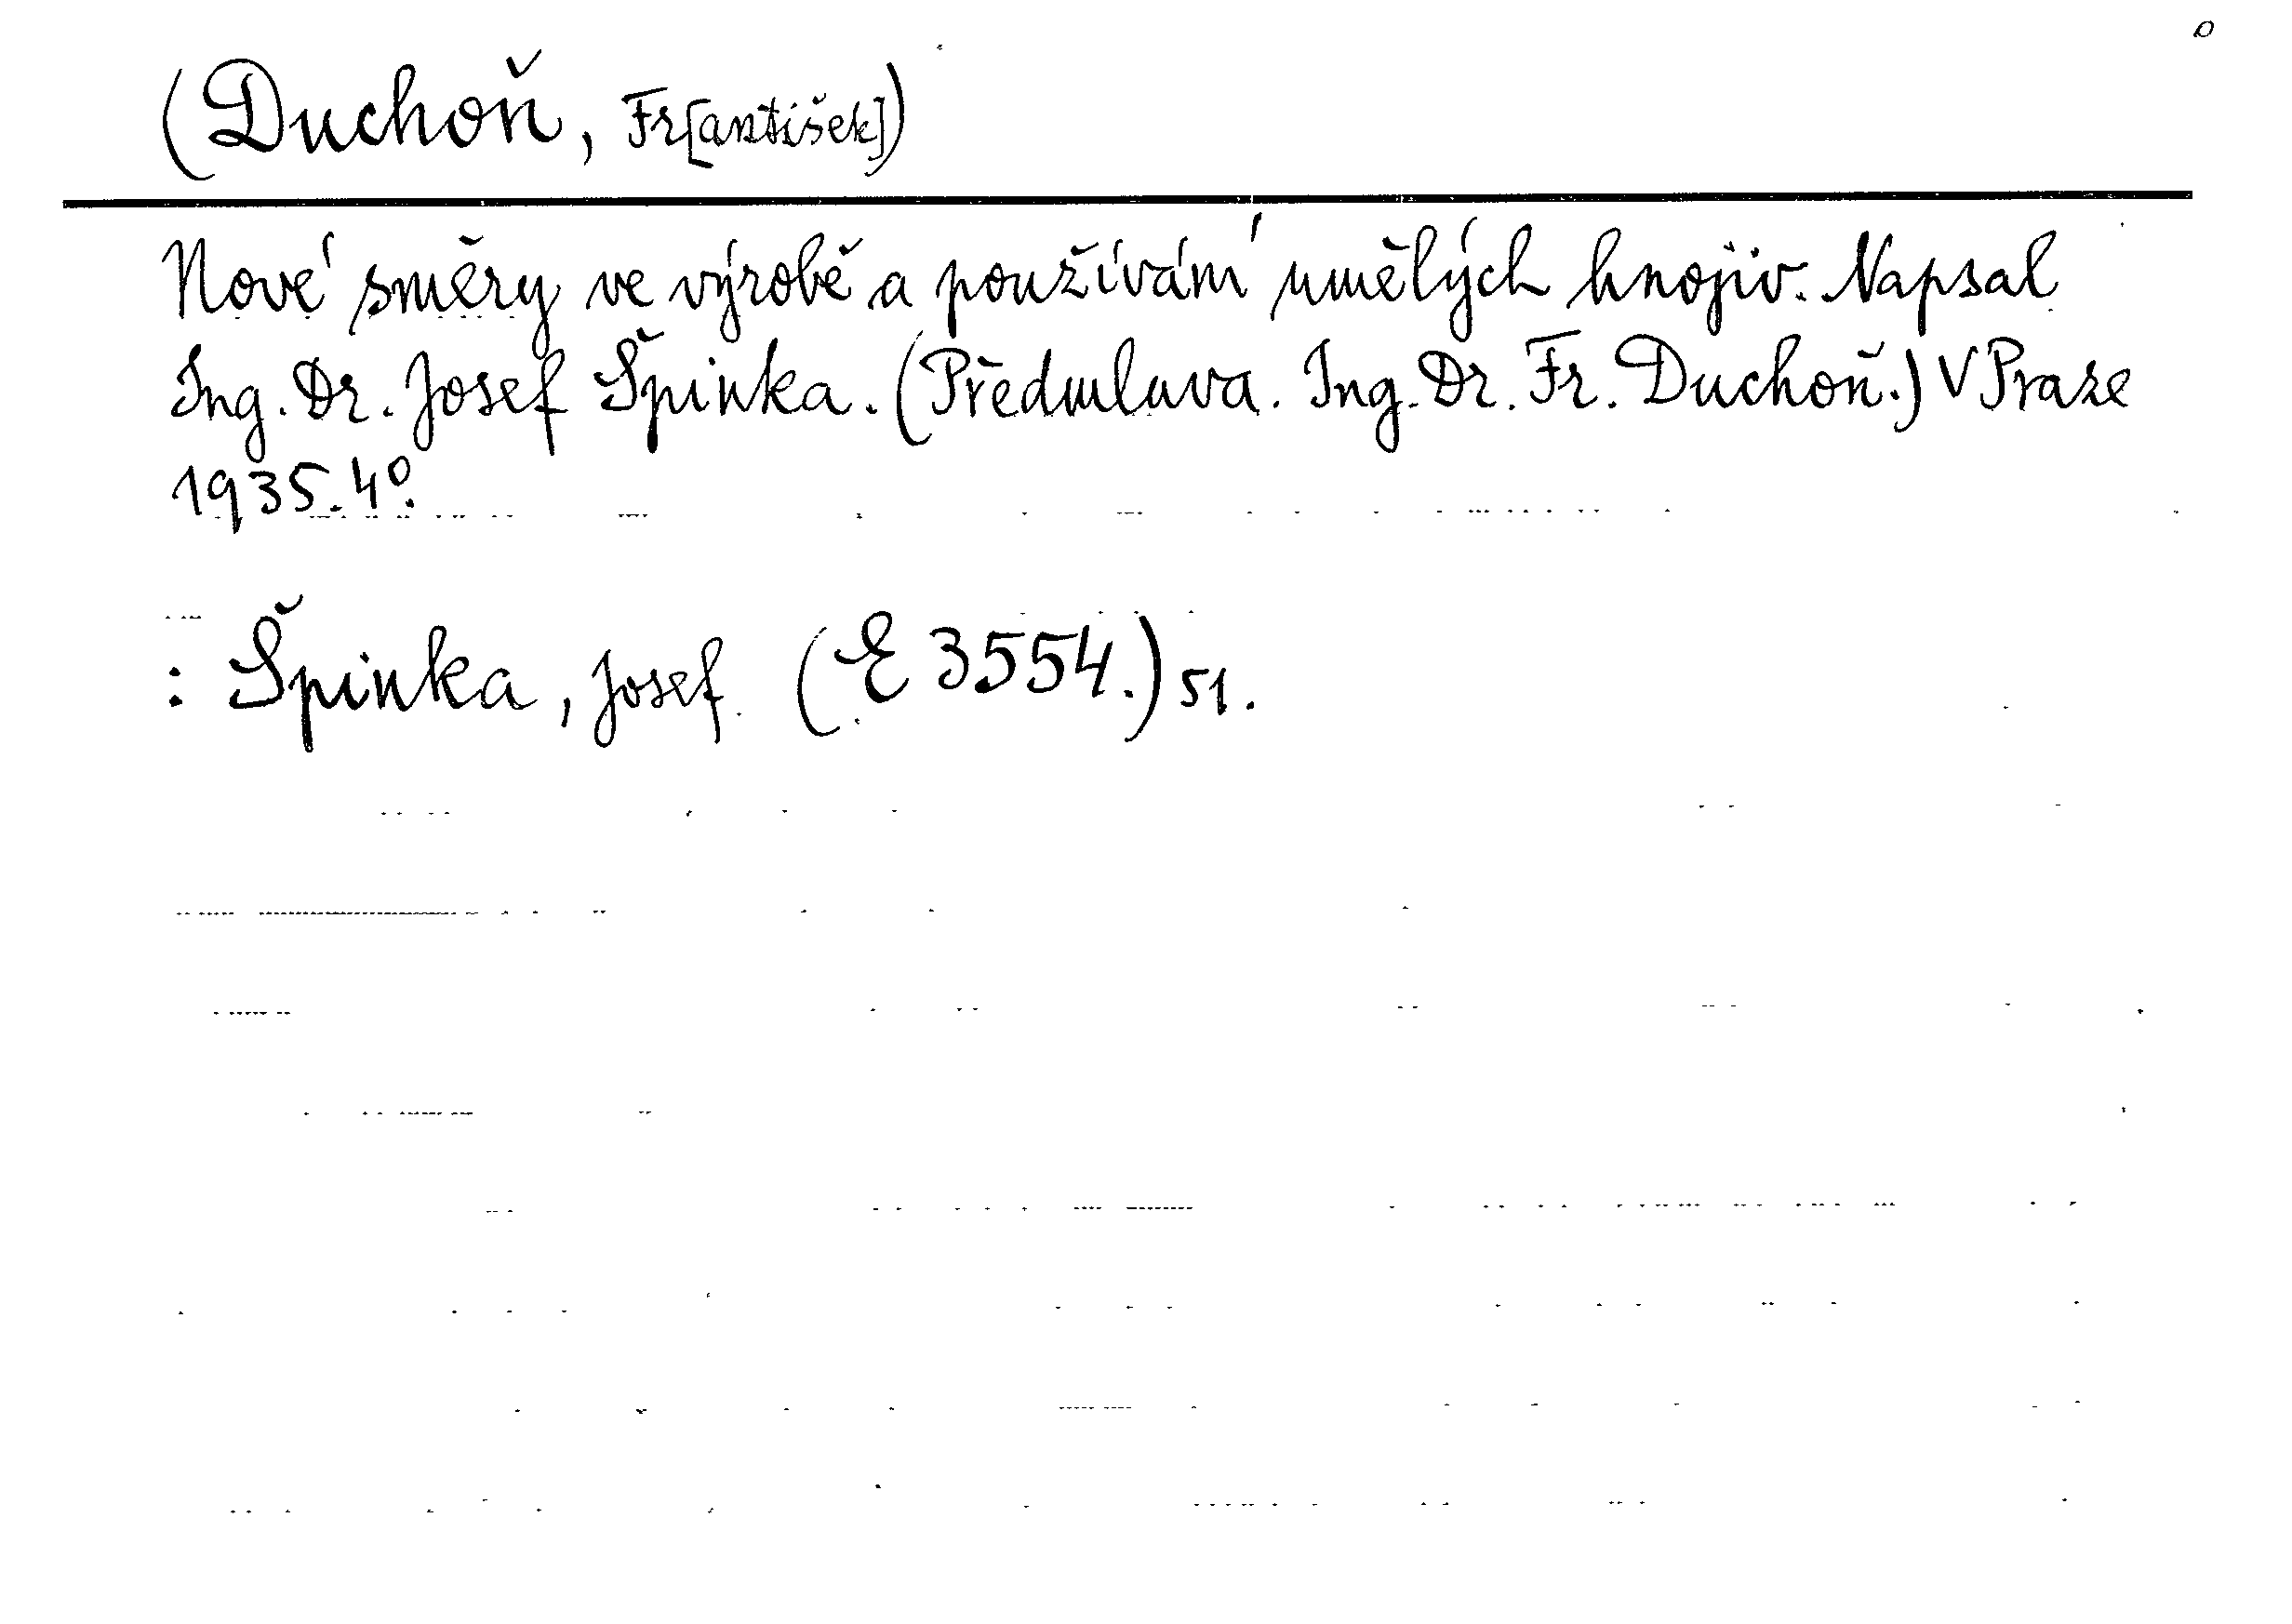 (Duchoň, Fr[antišek])
Nové směry ve výrobě a používání umělých hnojiv. Napsal
Ing. Dr. Josef Špinka. (Předmluva. Ing. Dr. Fr. Duchoň.) V Praze
1935. 4º.
: Špinka, Josef (E 3554.) 51.